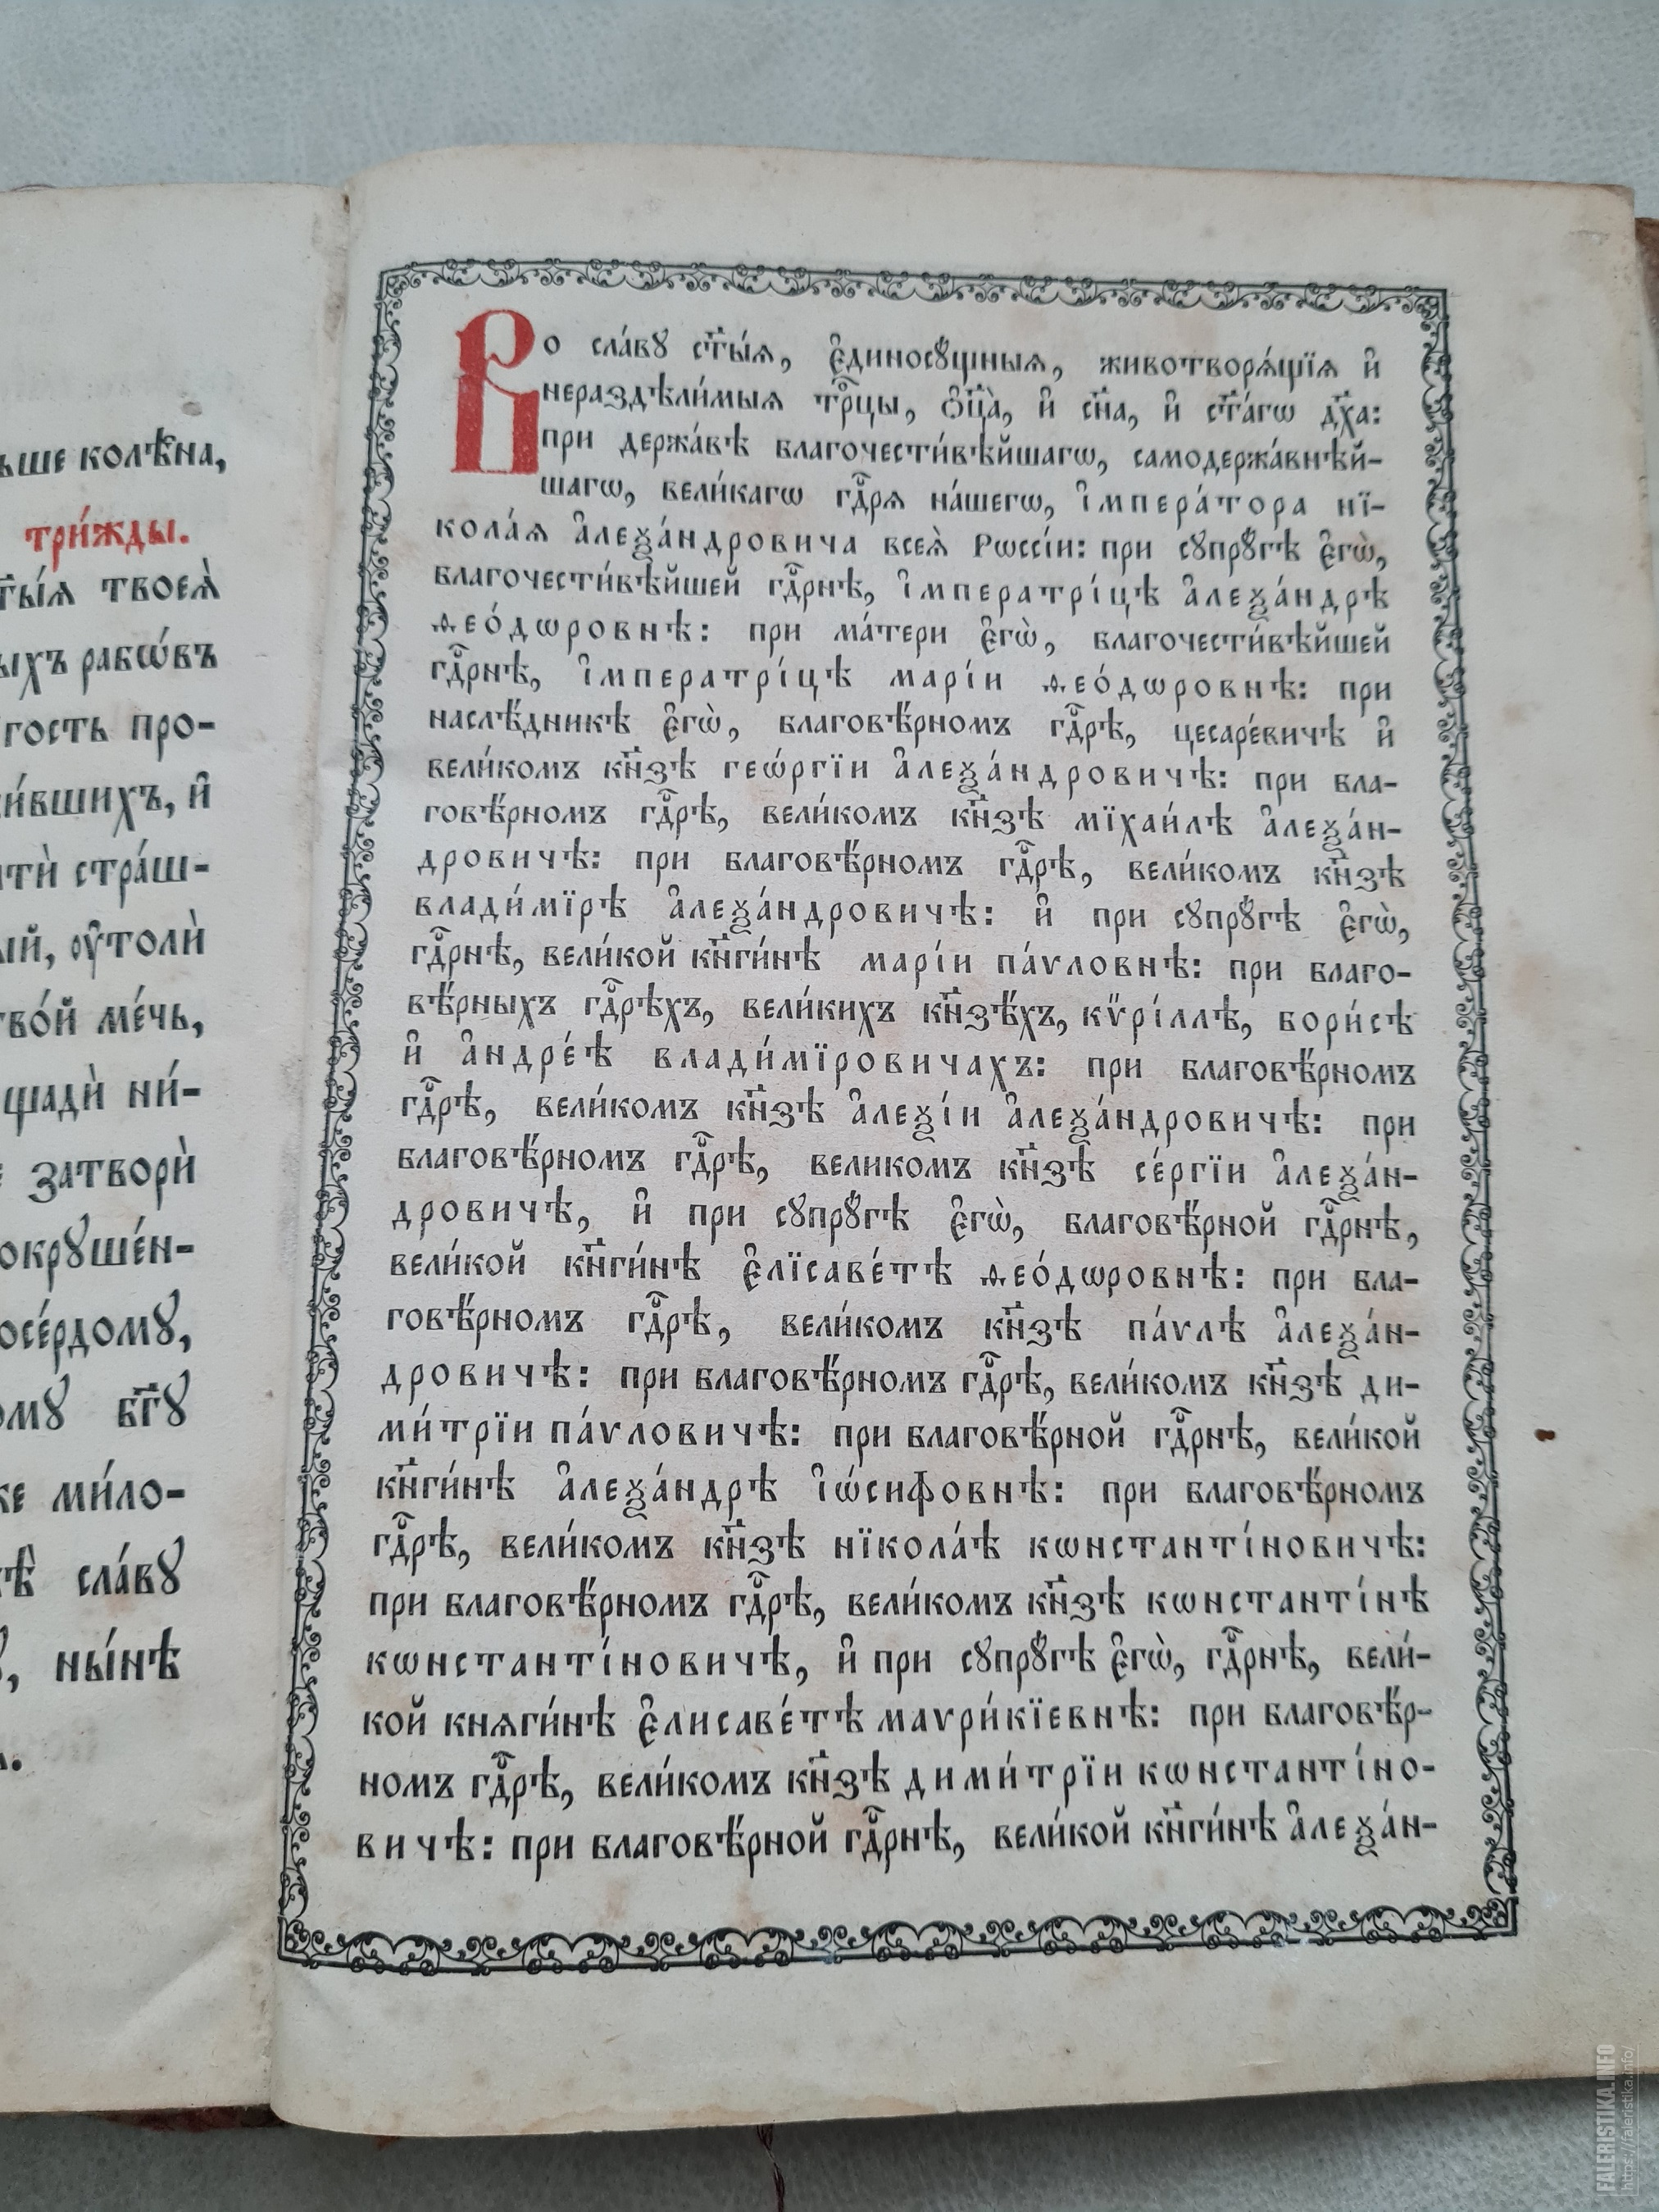 ьше колѣ́на,
три́жды.
ст҃ы́ѧ твоеѧ̀
ыхъ рабѡ́въ
гость про-
и́вшихъ, и҆
тѝ стра́ш-
ый, ᲂу҆толѝ
тво́й ме́чь,
щадѝ ни́-
затворѝ
окрꙋше́н-
осе́рдомꙋ,
омꙋ бг҃ꙋ
же ми́ло-
сла́вꙋ
ны́нѣ
Во сла́вꙋ ст҃ы́ѧ, є҆диносꙋ́щныѧ, животворѧ́щїѧ и҆
нераздѣли́мыѧ трⷪ҇цы, ѻ҆ц҃а̀, и҆ сн҃а, и҆ ст҃а́гѡ дх҃а:
при держа́вѣ благочести́вѣйшагѡ, самодержа́внѣй-
шагѡ, вели́кагѡ гдⷭ҇рѧ на́шегѡ, і҆мпера́тора нї-
кола́ѧ а҆леѯа́ндровича всеѧ̀ рѡссі́и: при сꙋпрꙋ́гѣ є҆гѡ̀,
благочести́вѣйшей гдⷭ҇рнѣ, і҆мператрі́цѣ а҆леѯа́ндрѣ
ѳео́дѡровнѣ: при ма́тери є҆гѡ̀, благочести́вѣйшей
гдⷭ҇рнѣ, і҆мператрі́цѣ марі́и ѳео́дѡровнѣ: при
наслѣ́дникѣ є҆гѡ̀, благовѣ́рномъ гдⷭ҇рѣ, цесаре́вичѣ и҆
вели́комъ кн҃зѣ геѡ́ргїи а҆леѯа́ндровичѣ: при бла-
говѣ́рномъ гдⷭ҇рѣ, вели́комъ кн҃зѣ мїхаи́лѣ а҆леѯа́н-
дровичѣ: при благовѣ́рномъ гдⷭ҇рѣ, вели́комъ кн҃зѣ
влади́мїрѣ а҆леѯа́ндровичѣ: и҆ при сꙋпрꙋ́гѣ є҆гѡ̀,
гдⷭ҇рнѣ, вели́кой кн҃ги́нѣ марі́и па́ѵловнѣ: при благо-
вѣ́рныхъ гдⷭ҇рѣхъ, вели́кихъ кн҃зѣ́хъ, кѷрі́ллѣ, бори́сѣ
и҆ а҆ндре́ѣ влади́мїровичахъ: при благовѣ́рномъ
гдⷭ҇рѣ, вели́комъ кн҃зѣ а҆леѯі́и а҆леѯа́ндровичѣ: при
благовѣ́рномъ гдⷭ҇рѣ, великомъ кн҃зѣ се́ргїи а҆леѯа́н-
дровичѣ, и҆ при сꙋпрꙋ́гѣ є҆гѡ̀, благовѣ́рной гдⷭ҇рнѣ,
вели́кой кн҃ги́нѣ є҆лїсаве́тѣ ѳео́дѡровнѣ: при бла-
говѣ́рномъ гдⷭ҇рѣ, вели́комъ кн҃зѣ па́ѵлѣ а҆леѯа́н-
дровичѣ: при благовѣ́рномъ гдⷭ҇рѣ, вели́комъ кн҃зѣ ди-
ми́трїи па́ѵловичѣ: при благовѣ́рной гдⷭ҇рнѣ, вели́кой
кн҃ги́нѣ а҆леѯа́ндрѣ і҆ѡ́сифовнѣ: при благовѣ́рномъ
гдⷭ҇рѣ, вели́комъ кн҃зѣ нїкола́ѣ кѡнстанті́новичѣ:
при благовѣ́рномъ гдⷭ҇рѣ, вели́комъ кн҃зѣ кѡнстанті́нѣ
кѡнстанті́новичѣ, и҆ при сꙋпрꙋ́гѣ є҆гѡ̀, гдⷭ҇рнѣ, вели́-
кой княги́нѣ є҆лисаве́тѣ маѵри́кїевнѣ: при благовѣ́р-
номъ гдⷭ҇рѣ, вели́комъ кн҃зѣ дими́трїи кѡнстанті́но-
вичѣ: при благовѣ́рной гдⷭ҇рнѣ, вели́кой кн҃ги́нѣ а҆леѯа́н-
FALERISTIKA.INFO
https://faleristika.info/